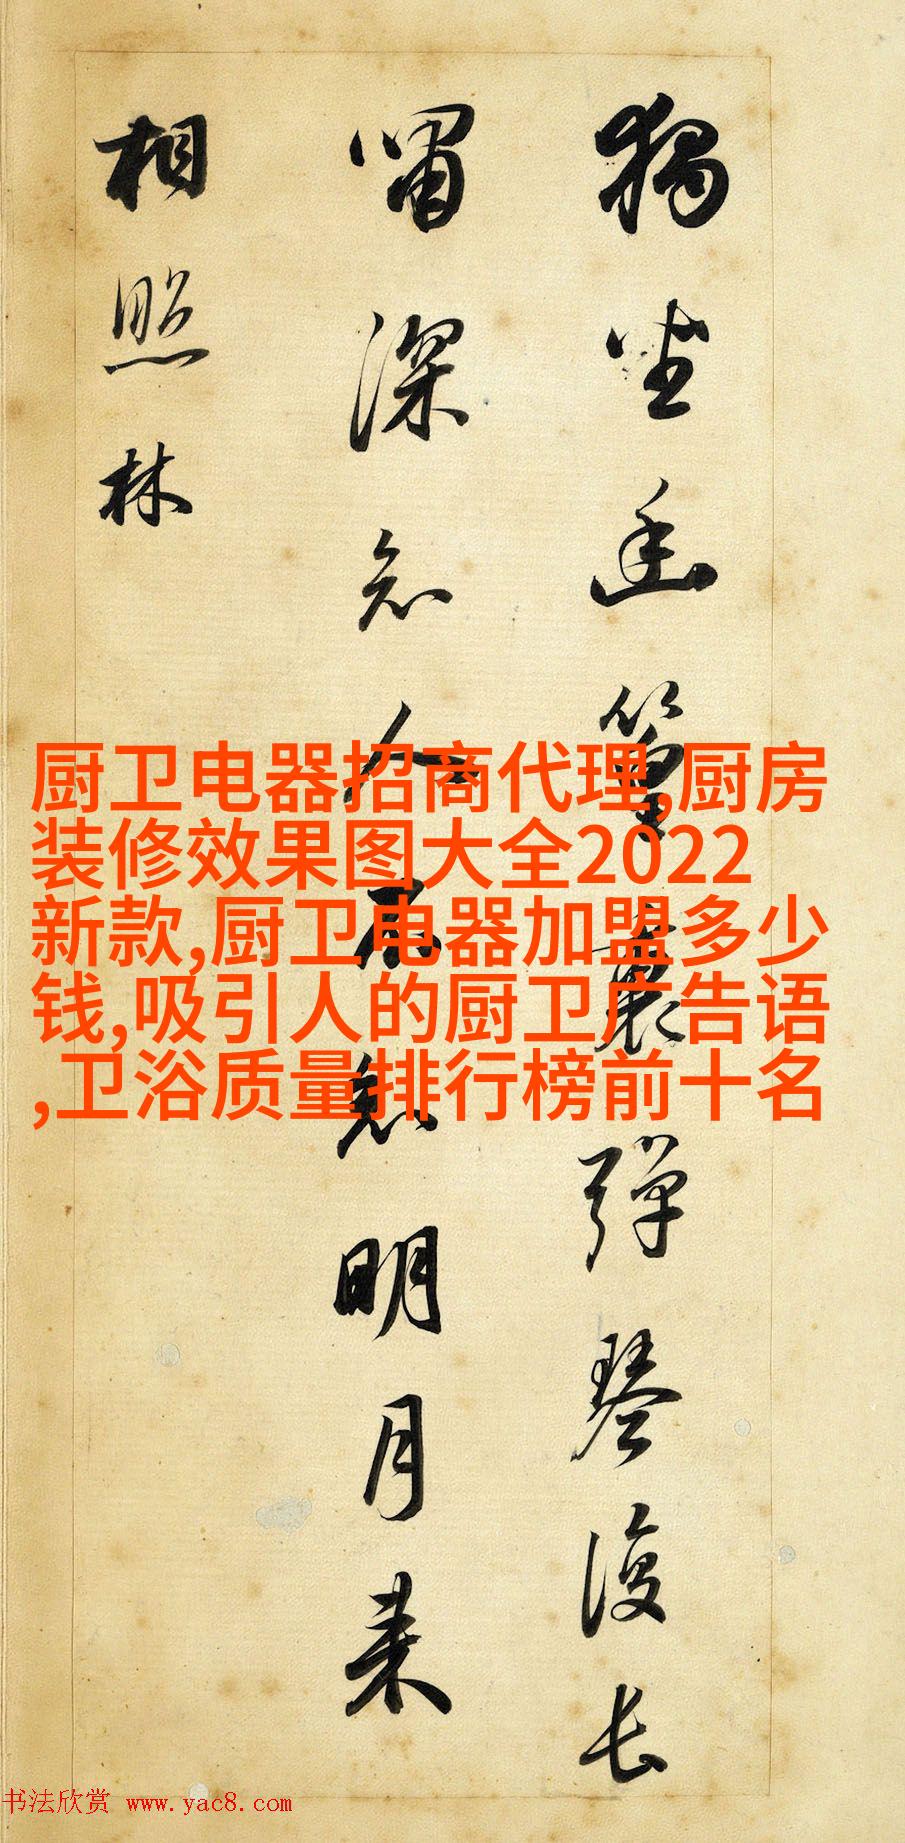 獨坐幽篁裏彈琴復长
嘯深知人不知明月来
相照林
厨卫电器招商代理,厨房
装修效果图大全2022
新款,厨卫电器加盟多少
钱,吸引人的厨卫广告语
,卫浴质量排行榜前十名
书法欣赏 www.yac8.com